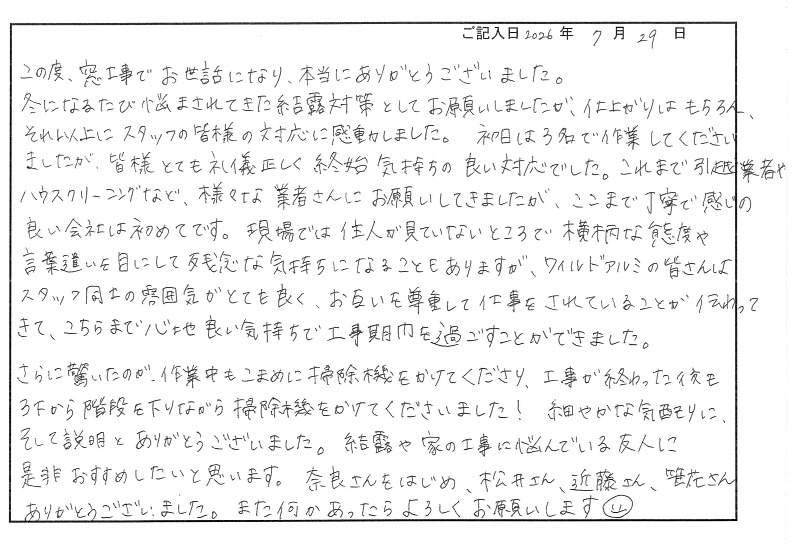 ご記入日 2026 年 7 月 29 日
この度、窓工事でお世話になり、本当にありがとうございました。
冬になるたび悩まされてきた結露対策としてお願いしましたが、仕上がりはもちろん、
それ以上にスタッフの皆様の対応に感動しました。 初日は3名で作業してください
ましたが、皆様とても礼儀正しく終始気持ちの良い対応でした。これまで引越業者や
ハウスクリーニングなど、様々な業者さんにお願いしてきましたが、ここまで丁寧で感じの
良い会社は初めてです。現場では住人が見ていないところで横柄な態度や
言葉遣いを目にして残念な気持ちになることもありますが、ワイルドアルミの皆さんは
スタッフ同士の雰囲気がとても良く、お互いを尊重して仕事をされていることが伝わって
きて、こちらまで心地良い気持ちで工事期間を過ごすことができました。
さらに驚いたのが、作業中もこまめに掃除機をかけてくださり、工事が終わった後も
3Fから階段を下りながら掃除機をかけてくださいました! 細やかな気配りに、
そして説明とありがとうございました。結露や家の工事に悩んでいる友人に
是非おすすめしたいと思います。奈良さんをはじめ、松井さん、近藤さん、笹花さん
ありがとうございました。また何かあったらよろしくお願いします